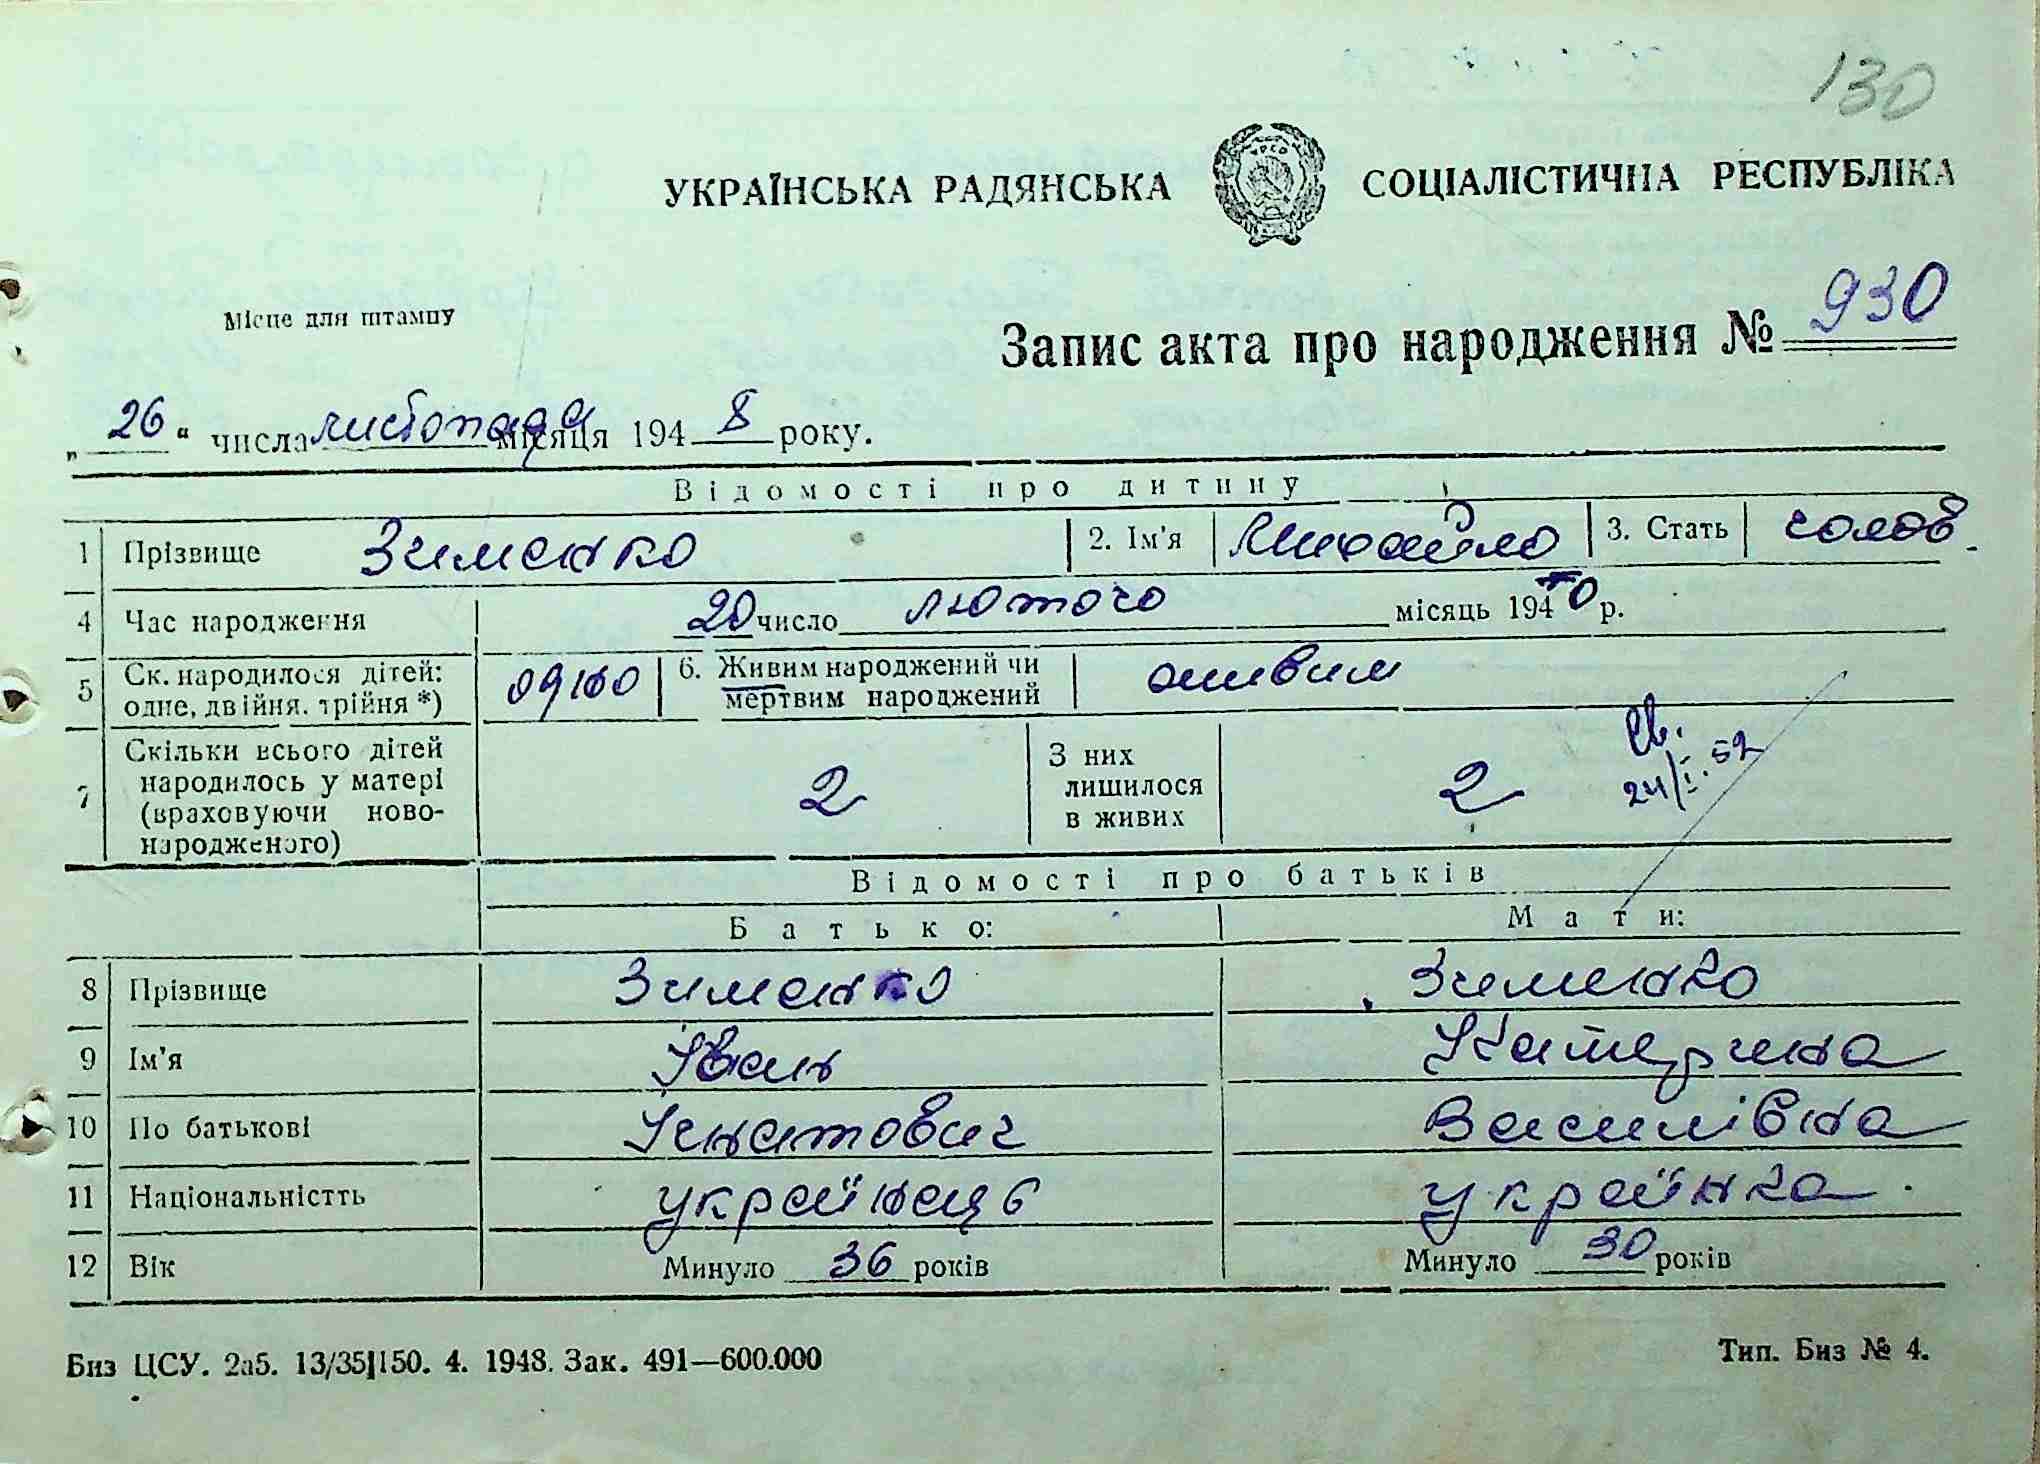 130
УКРАЇНСЬКА РАДЯНСЬКА СОЦІАЛІСТИЧНА РЕСПУБЛІКА
УРСР
Місце для штампу
Запис акта про народження № 930
„ 26 “ числа листопада місяця 194 8 року.
Відомості про дитину
1 Прізвище Зименко 2. Ім'я Михайло 3. Стать чолов.
4 Час народження 20 число лютого місяць 194 0 р.
5 Ск. народилося дітей: одне, двійня, трійня *) одно 6. Живим народжений чи мертвим народжений живим
7 Скільки всього дітей народилось у матері (враховуючи новонародженого) 2 З них лишилося в живих 2
24/I.52
Відомості про батьків
Батько: Мати:
8 Прізвище Зименко Зименко
9 Ім'я Іван Катерина
10 По батькові Ігнатович Василівна
11 Національністть українець українка
12 Вік Минуло 36 років Минуло 30 років
Биз ЦСУ. 2а5. 13/35|150. 4. 1948. Зак. 491—600.000 Тип. Биз № 4.